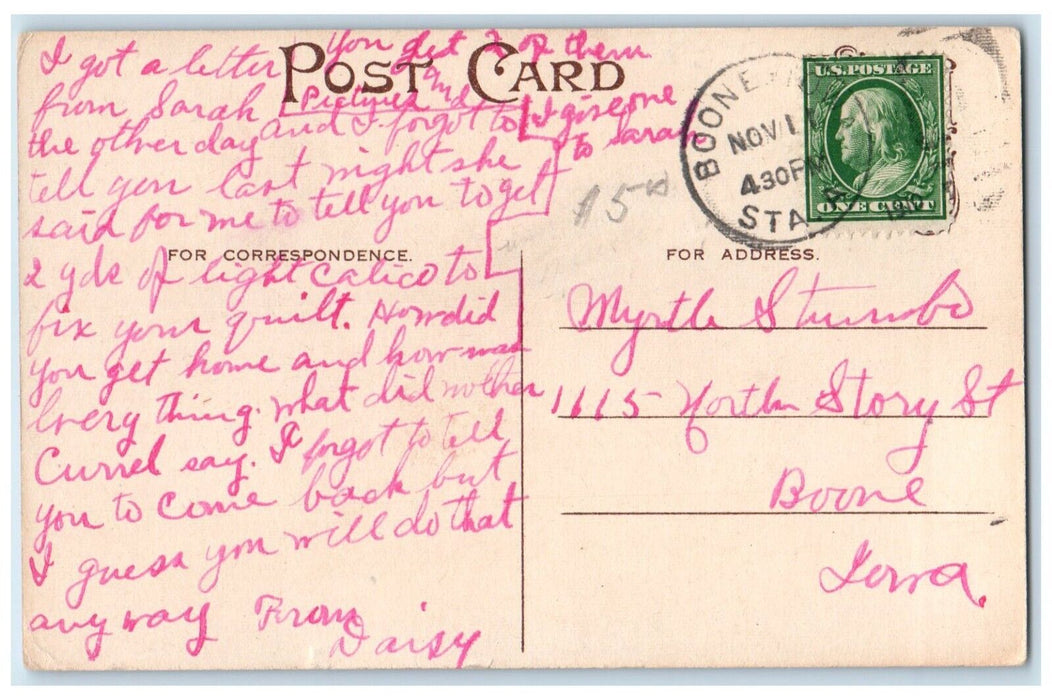 You get 2 of them
POST CARD
Pictures and
I give one
to Sarah
I got a letter
from Sarah
the other day and I forgot to
tell you last night she
said for me to tell you to get
2 yds of light calico to
fix your quilt. How did
you get home and how was
every thing. what did mother
Currel say. I forgot to tell
you to come back but
I guess you will do that
any way From
Daisy
FOR CORRESPONDENCE.
15
BOONE
NOV 1
430PM
STA. A
U.S. POSTAGE
ONE CENT
FOR ADDRESS.
Myrtle Stumbo
1115 North Story St
Boone
Iowa.